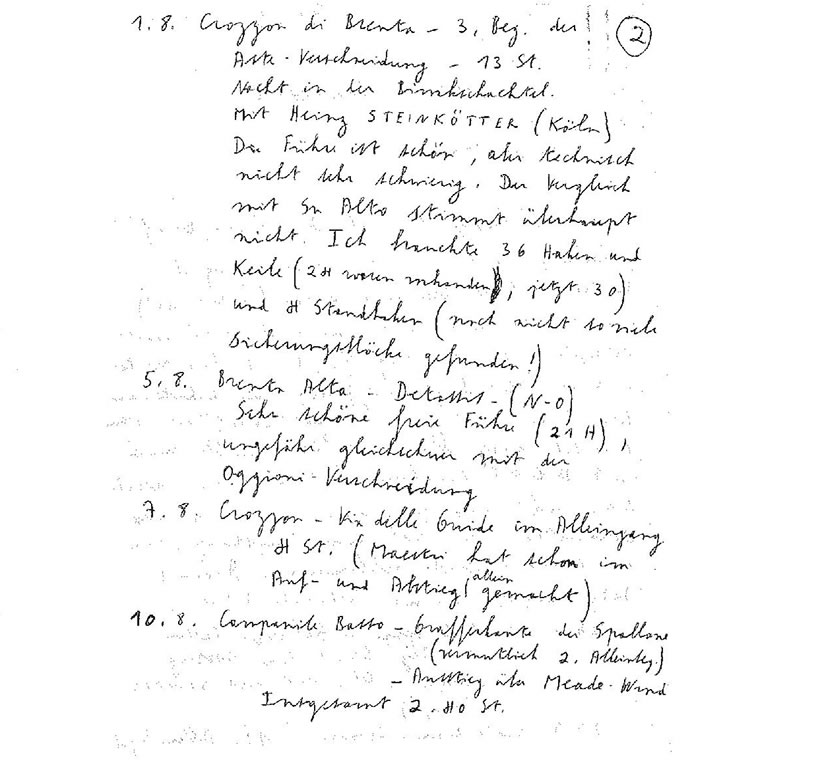 1. 8. Crozzon di Brenta - 3. Beg. der
2
Aste-Verschneidung - 13 St.
Nacht in der Biwakschachtel.
Mit Heinz STEINKÖTTER (Köln)
Die Führe ist schön, aber technisch
nicht sehr schwierig. Der Vergleich
mit Su Alto stimmt überhaupt
nicht. Ich brauchte 36 Haken und
Keile (24 waren vorhanden, jetzt 30)
und 8 Standhaken (noch nicht so viele
Sicherungsblöcke gefunden!)
5. 8. Brenta Alta - Detassis - (N-O)
Sehr schöne freie Führe (21 H),
ungefähr gleichschwer mit der
Oggioni-Verschneidung
7. 8. Crozzon - Via delle Guide im Alleingang
8 St. (Maestri hat schon im
Auf- und Abstieg allein gemacht)
10. 8. Campanile Basso - Grafferkante des Spallone
(vermutlich 2. Alleinbeg.)
- Ausstieg über Meade-Wand
Insgesamt 2.40 St.